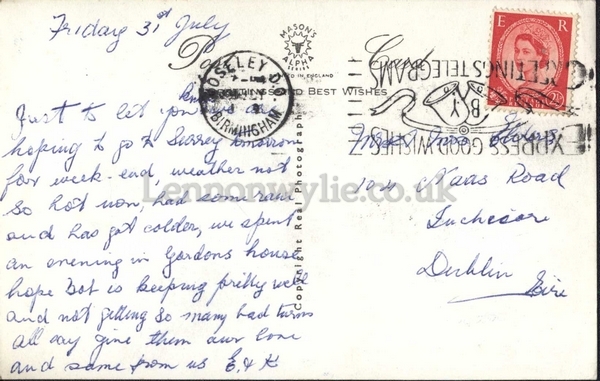 Friday 31st July
MASON'S
ALPHA
Post Card
PRINTED IN ENGLAND
GREETINGS AND BEST WISHES
MOSELEY DO
BIRMINGHAM
E R
GREETINGS TELEGRAMS
BY
EXPRESS GOOD WISHES
Just to let you we are
hoping to go to Surrey tomorrow
for week-end, weather not
so hot now, had some rain
and has got colder, we spent
an evening in Gordons house
hope Dot is keeping pretty well
and not getting so many bad turns
all day give them our love
and same from us E. & K
Copyright Real Photograph
104 Naas Road
Inchicore
Dublin
Eire
Lennonwylie.co.uk